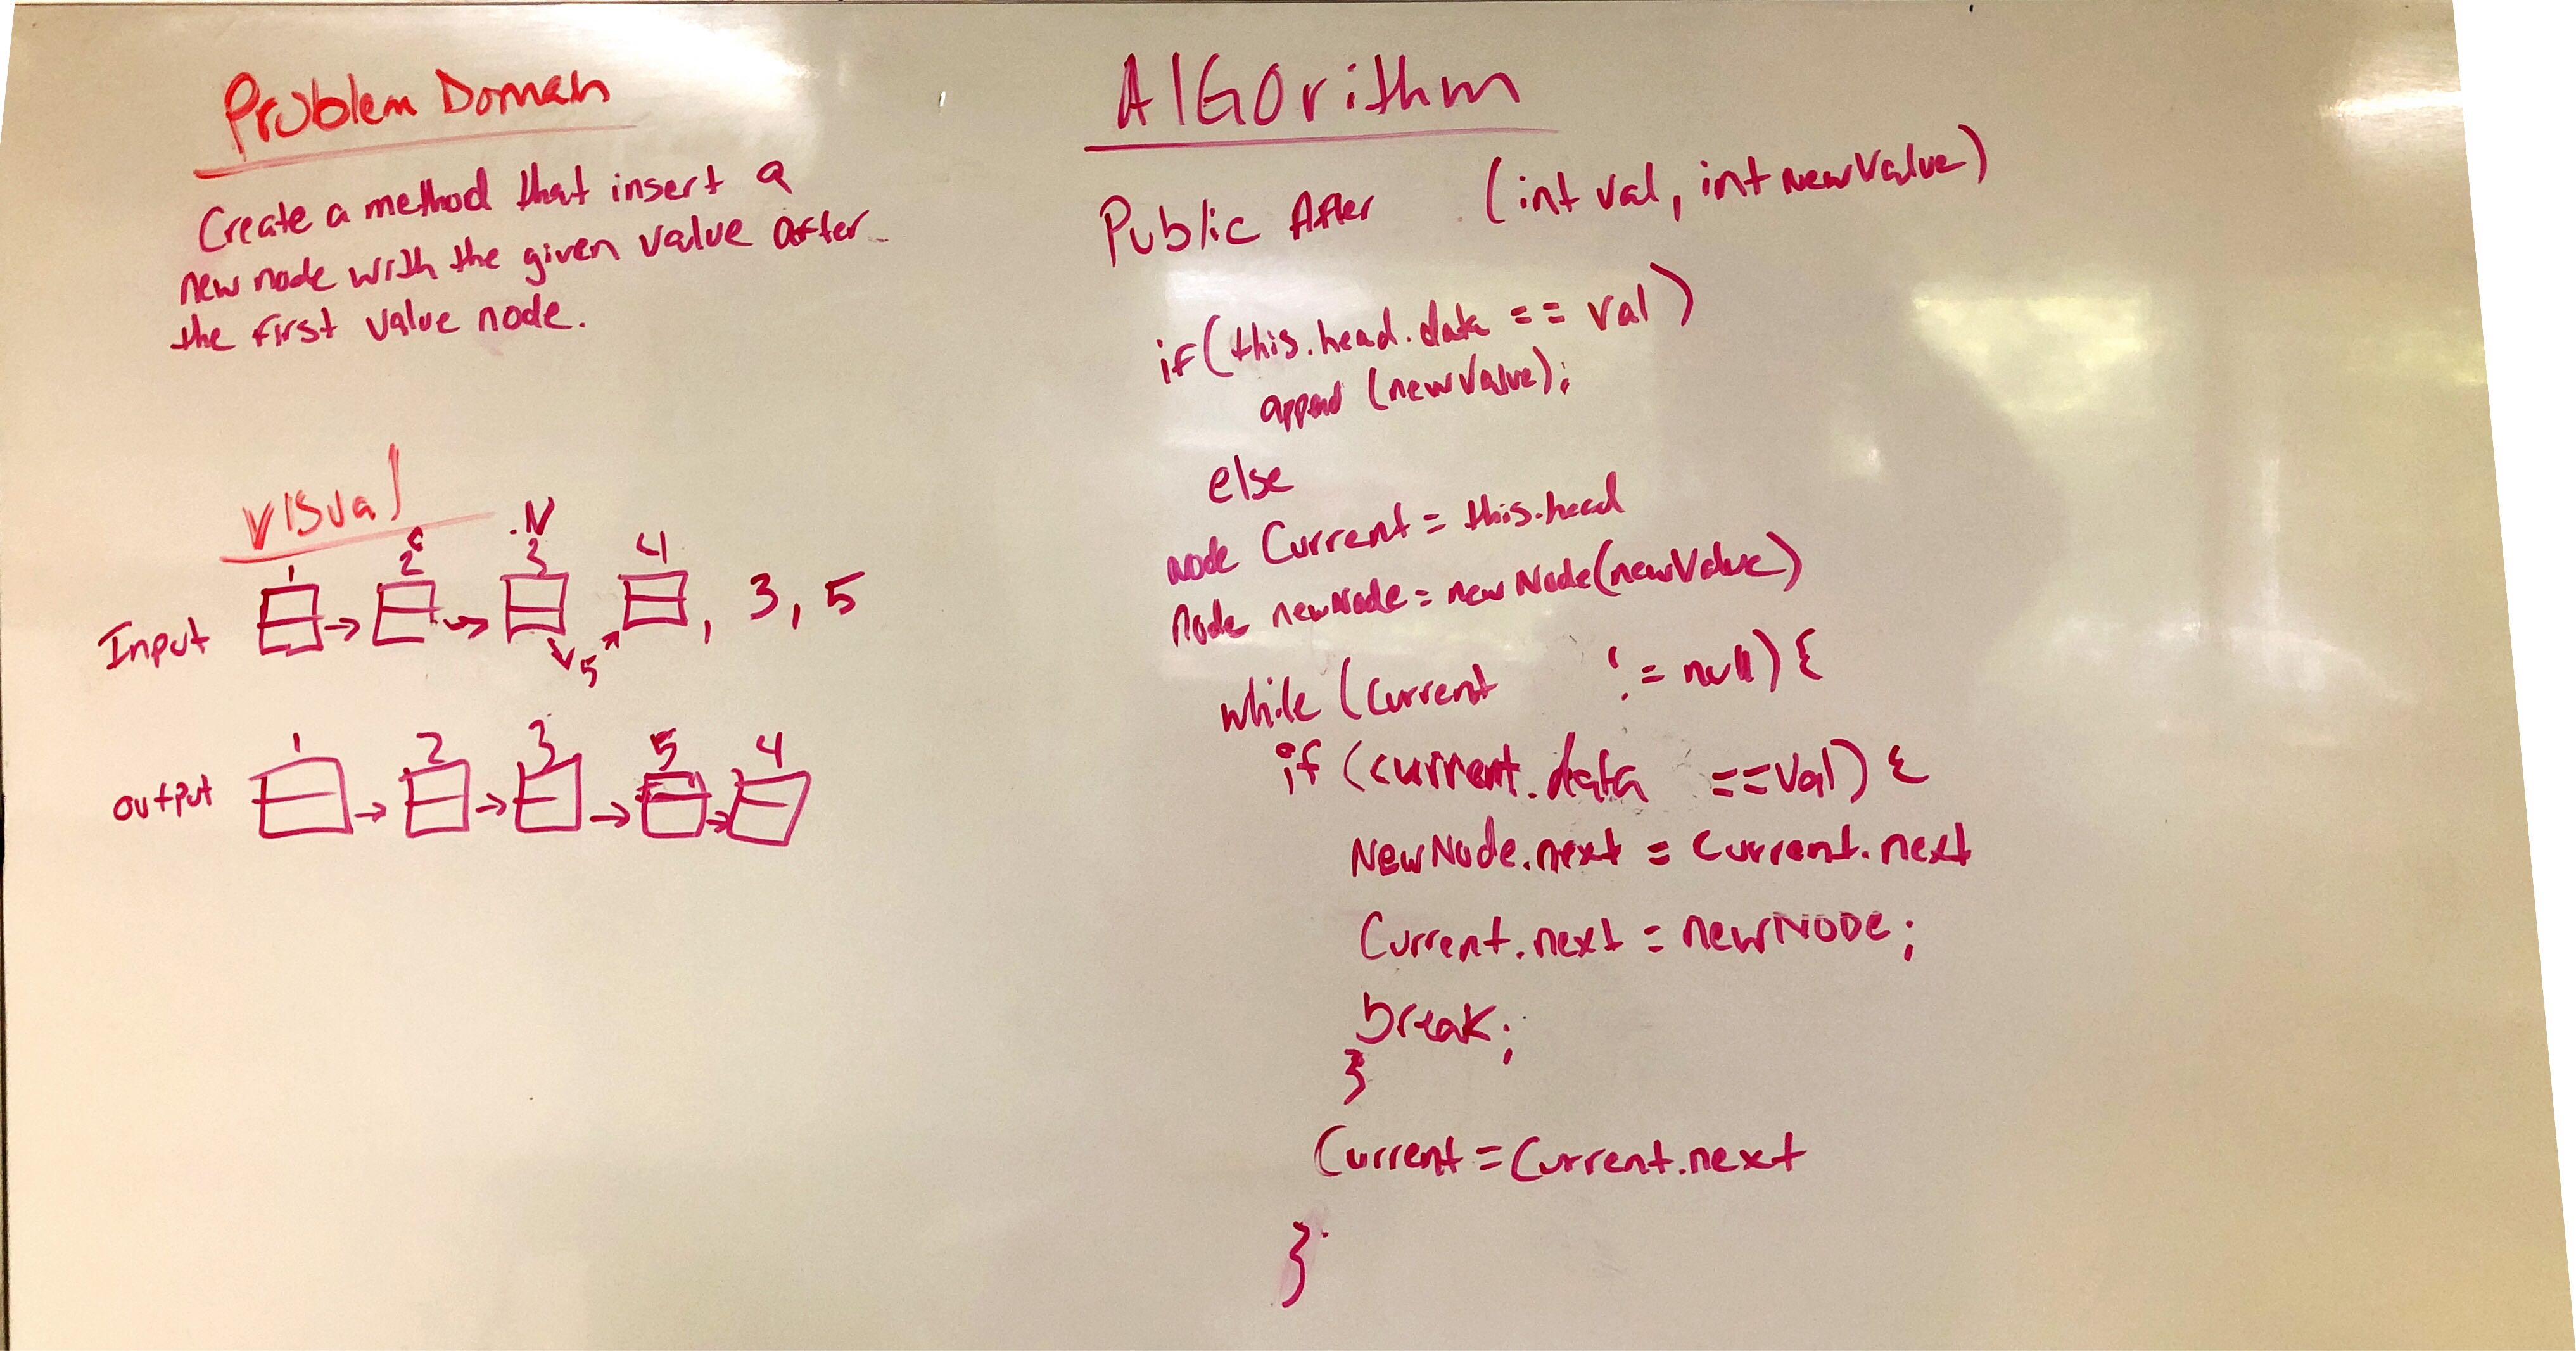 Problem Doman
Create a method that insert a
new node with the given value after
the first value node.
Visual
c .N
1 2 3 4
Input , 3, 5
5
1 2 3 5 4
output
AlGOrithm
Public After (int val, int newValue)
if(this.head.data == val)
append (newValue);
else
node Current = this.head
Node newNode = new Node(newValue)
while (Current != null) {
if (current.data ==Val) {
NewNode.next = Current.next
Current.next = newNODE;
break;
}
Current = Current.next
}